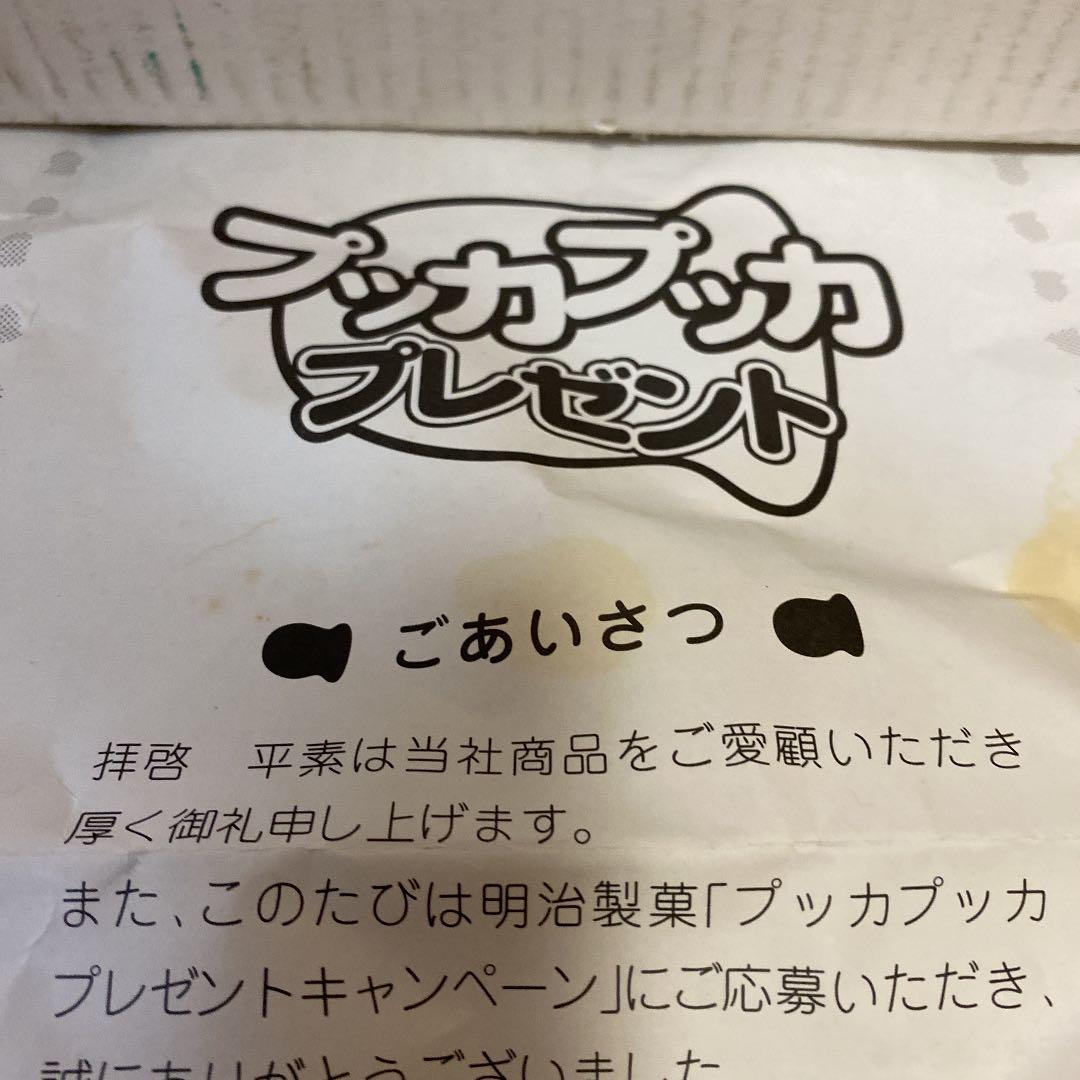 プッカプッカ
プレゼント
ごあいさつ
拝啓　平素は当社商品をご愛顧いただき
厚く御礼申し上げます。
また、このたびは明治製菓「プッカプッカ
プレゼントキャンペーン」にご応募いただき、
誠にありがとうございました